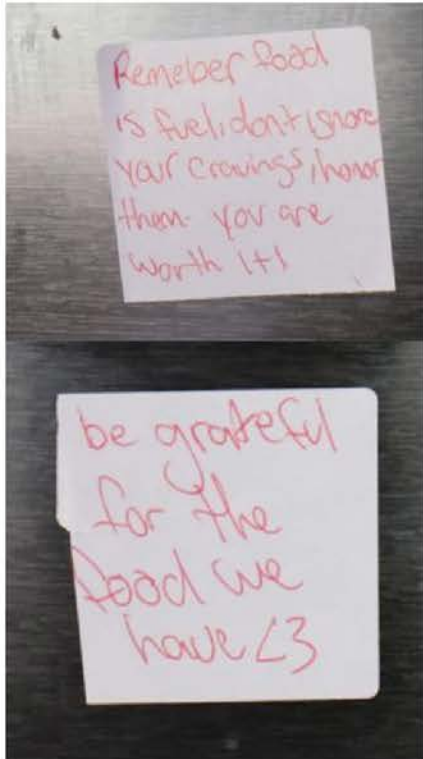 Remeber food
is fuel, don't ignore
your cravings, honor
them. you are
worth it!
be grateful
for the
food we
have <3